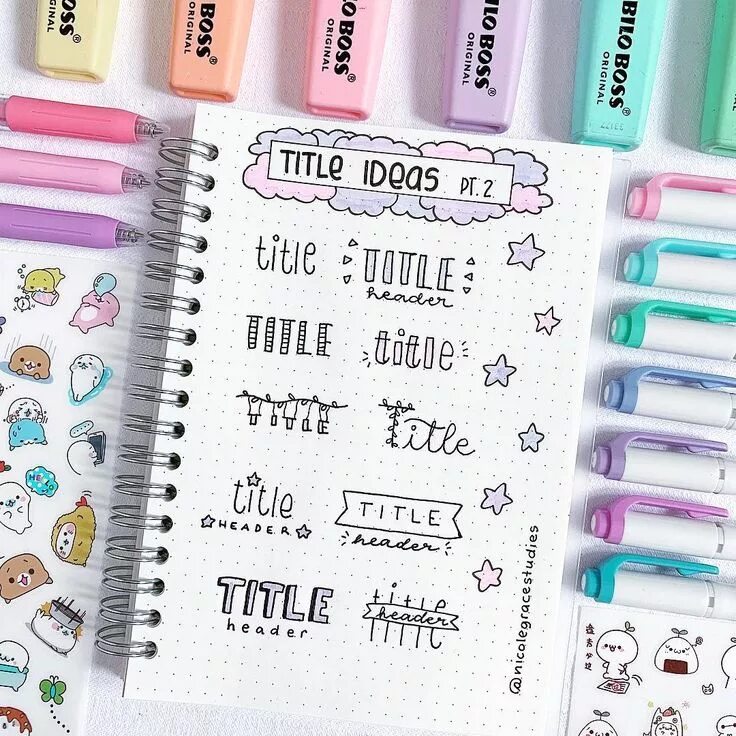 BOSS
ORIGINAL
BOSS
ORIGINAL
LO BOSS
ORIGINAL
LO BOSS
ORIGINAL
BILO BOSS
ORIGINAL
BILO BOSS
ORIGINAL
TITLE IDEAS PT. 2
title
TITLE
header
TITLE
title
TITLE
title
title
HEADER
TITLE
header
TITLE
header
title
header
@nicolegracestudies
HELLO